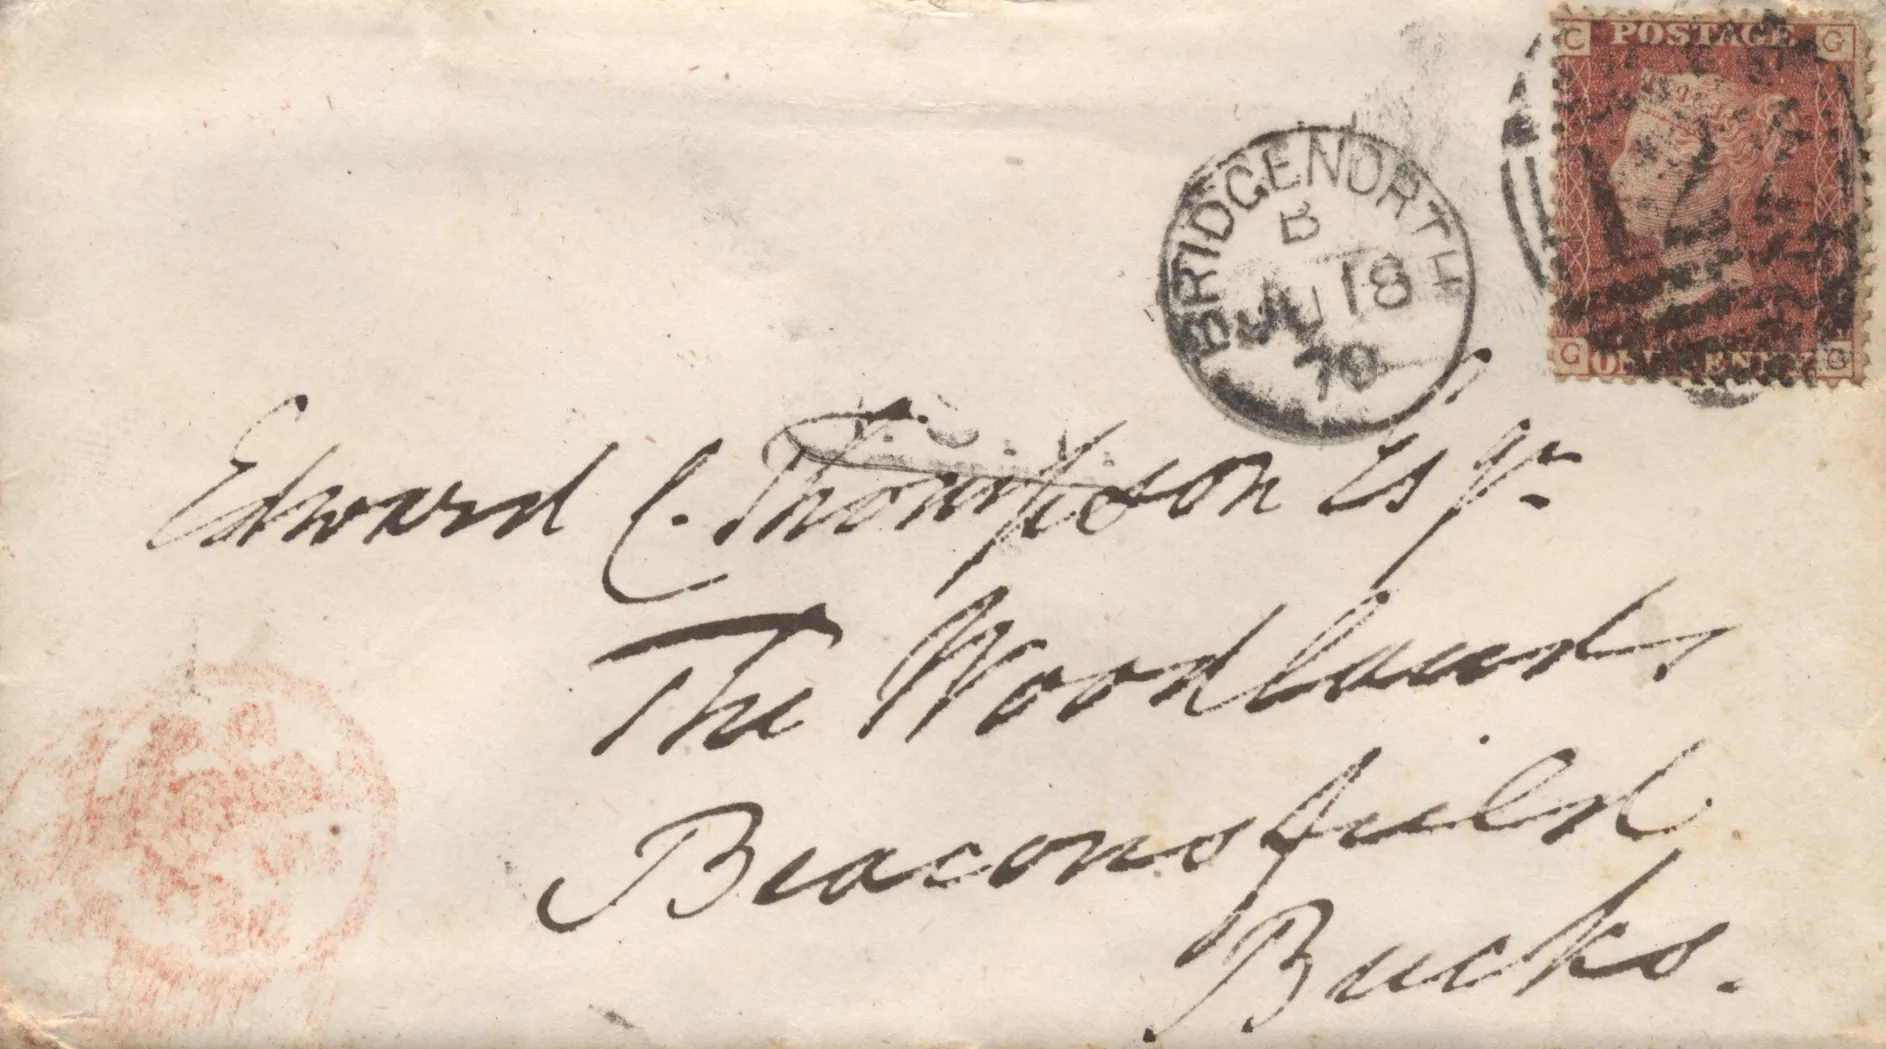 C POSTAGE G
BRIDGENORTH
B
JU 18
70
G ONE PENNY C
Edward C. Thompson Esqr
The Woodlands
Beaconsfield
Bucks.